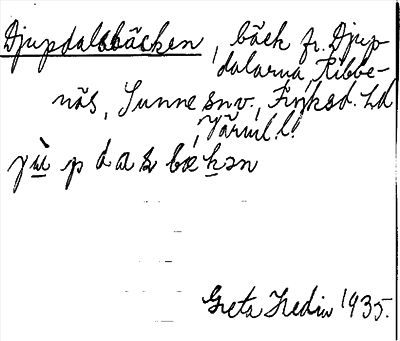 Djupdalsbäcken, bäck fr. Djup-
dalarna, Ribbe-
näs, Sunne snv., Fryksd. hd
, Värml. l.
yṳ p d a s bækən
Greta Hedin 1935.